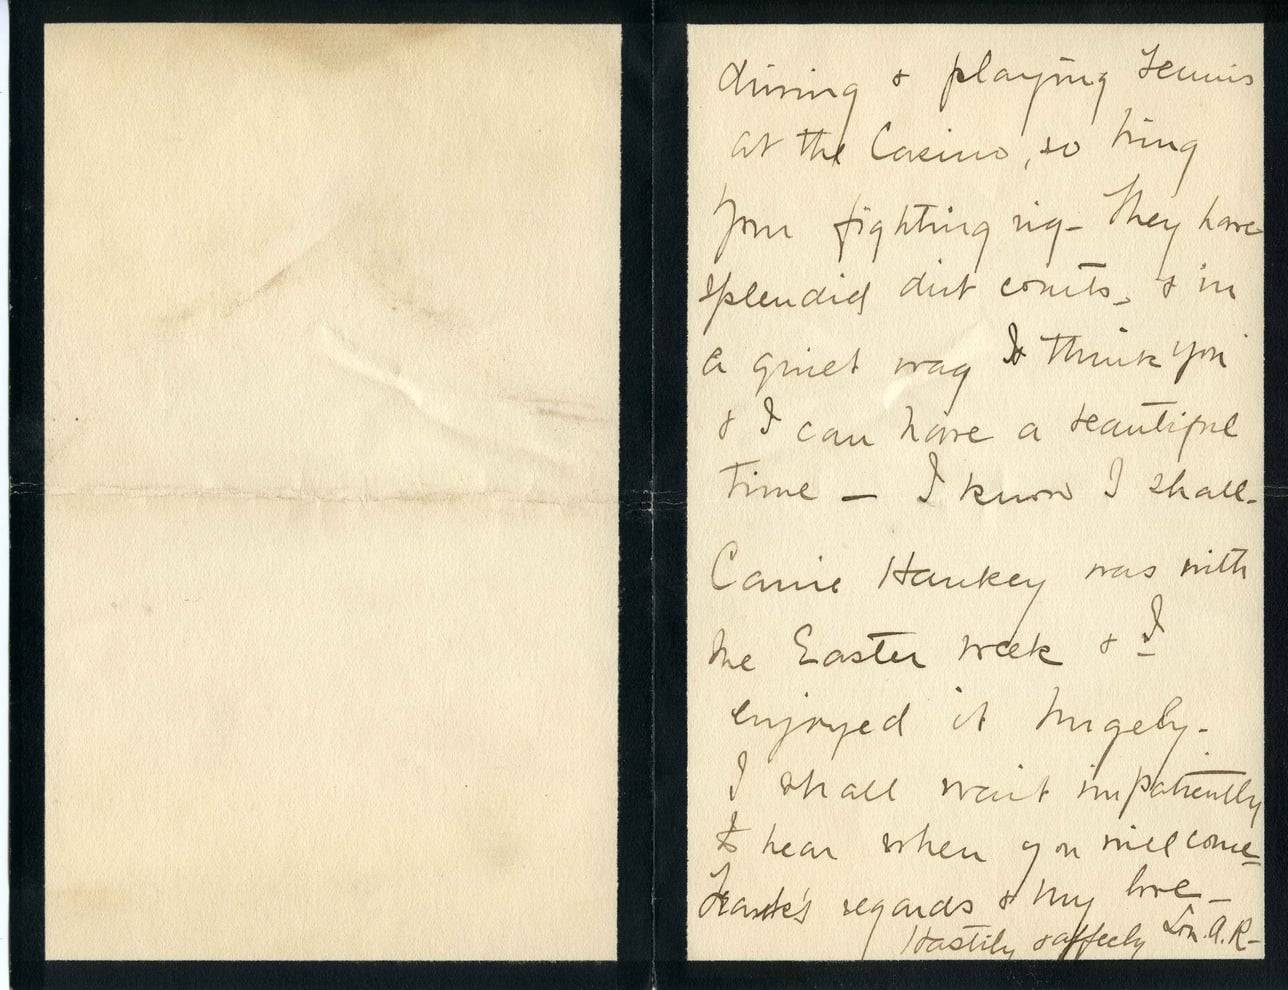 driving & playing tennis
at the Casino, so bring
your fighting rig - They have
splendid dirt courts, & in
a quiet way I think you
& I can have a beautiful
time — I know I shall -
Carrie Hankey was with
me Easter week & I
enjoyed it hugely -
I shall wait impatiently
to hear when you will come -
Frank's regards & my love -
Hastily & affecly Lou. A. R -